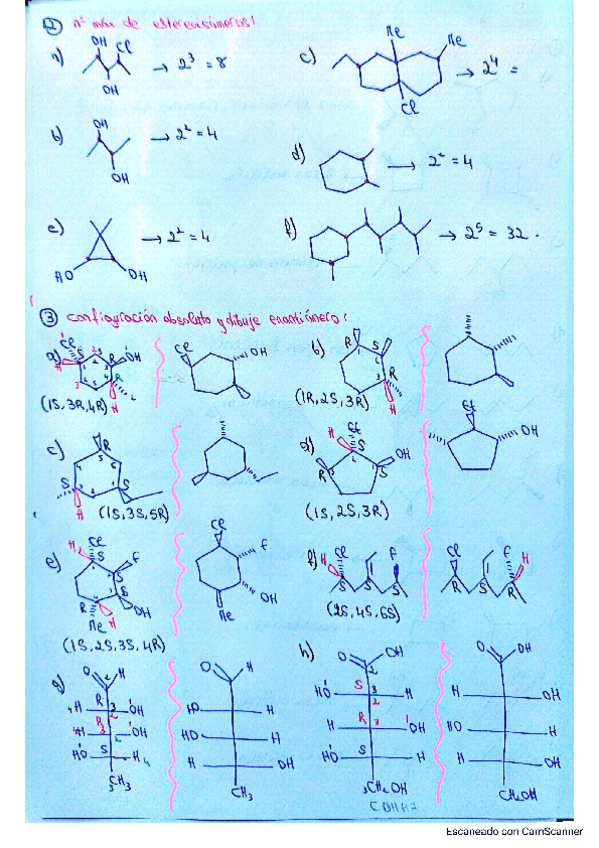 ② nº max de estereoisómeros!
a) OH Cl OH → 2³ = 8
c) Me Me Cl → 2⁴ =
b) OH OH → 2² = 4
d) → 2² = 4
e) HO OH → 2² = 4
f) → 2⁵ = 32.
③ configuración absoluta y dibuje enantiómero:
a) Cl S R OH R H H (1S, 3R, 4R) Cl OH
b) R S R H (1R, 2S, 3R)
c) R S S H (1S, 3S, 5R)
d) H Et S OH R S (1S, 2S, 3R) Et OH
e) H Cl S F S S R OH H Me (1S, 2S, 3S, 4R) Cl F OH Me
f) H Cl F S S S (2S, 4S, 6S) Cl F H R S R
g) O H H R OH H R OH HO S H CH₃
O H HO H HO H H OH CH₃
h) O OH HO S H H R OH HO S H CH₂OH
O OH H OH HO H H OH CH₂OH
Escaneado con CamScanner